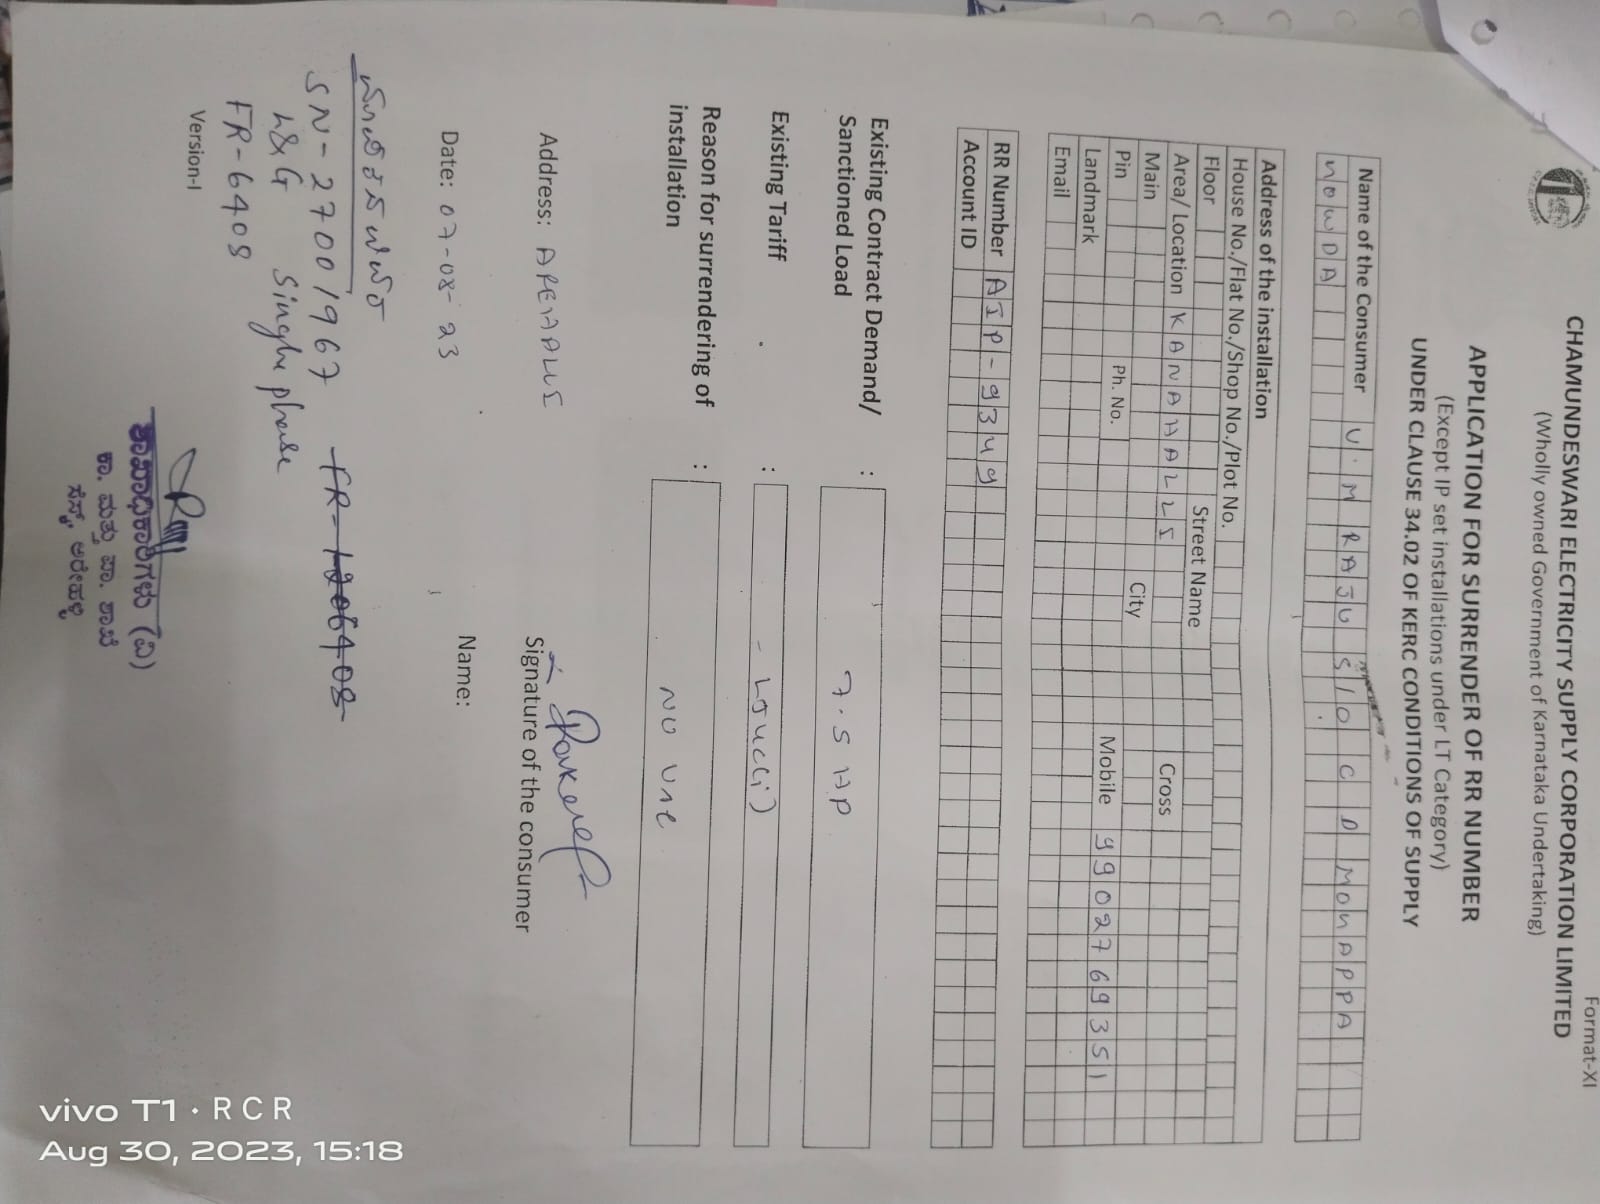 Format-XI
CHAMUNDESWARI ELECTRICITY SUPPLY CORPORATION LIMITED
(Wholly owned Government of Karnataka Undertaking)
APPLICATION FOR SURRENDER OF RR NUMBER
(Except IP set installations under LT Category)
UNDER CLAUSE 34.02 OF KERC CONDITIONS OF SUPPLY
Name of the Consumer U.M RAJU S/O C D MONAPPA
NOWDA
Address of the installation
House No./Flat No./Shop No./Plot No.
Floor Street Name
Area/ Location KANAHALLI
Main Cross
Pin City
Landmark Ph. No. Mobile 9902769351
Email
RR Number AIP-9349
Account ID
Existing Contract Demand/
Sanctioned Load : 7.5 HP
Existing Tariff :
Reason for surrendering of
installation : NO Use
Address: AREHALLI
Signature of the consumer
Date: 07-08-23 Name:
SN-27001967 FR-
L&G Single phase
FR-6408
Version-I
(ವಿ)
ಕಾ. ಮತ್ತು ಪಾ. ಶಾಖೆ
ಸೆಸ್ಕ್, ಅರೇಹಳ್ಳಿ
vivo T1 · R C R
Aug 30, 2023, 15:18